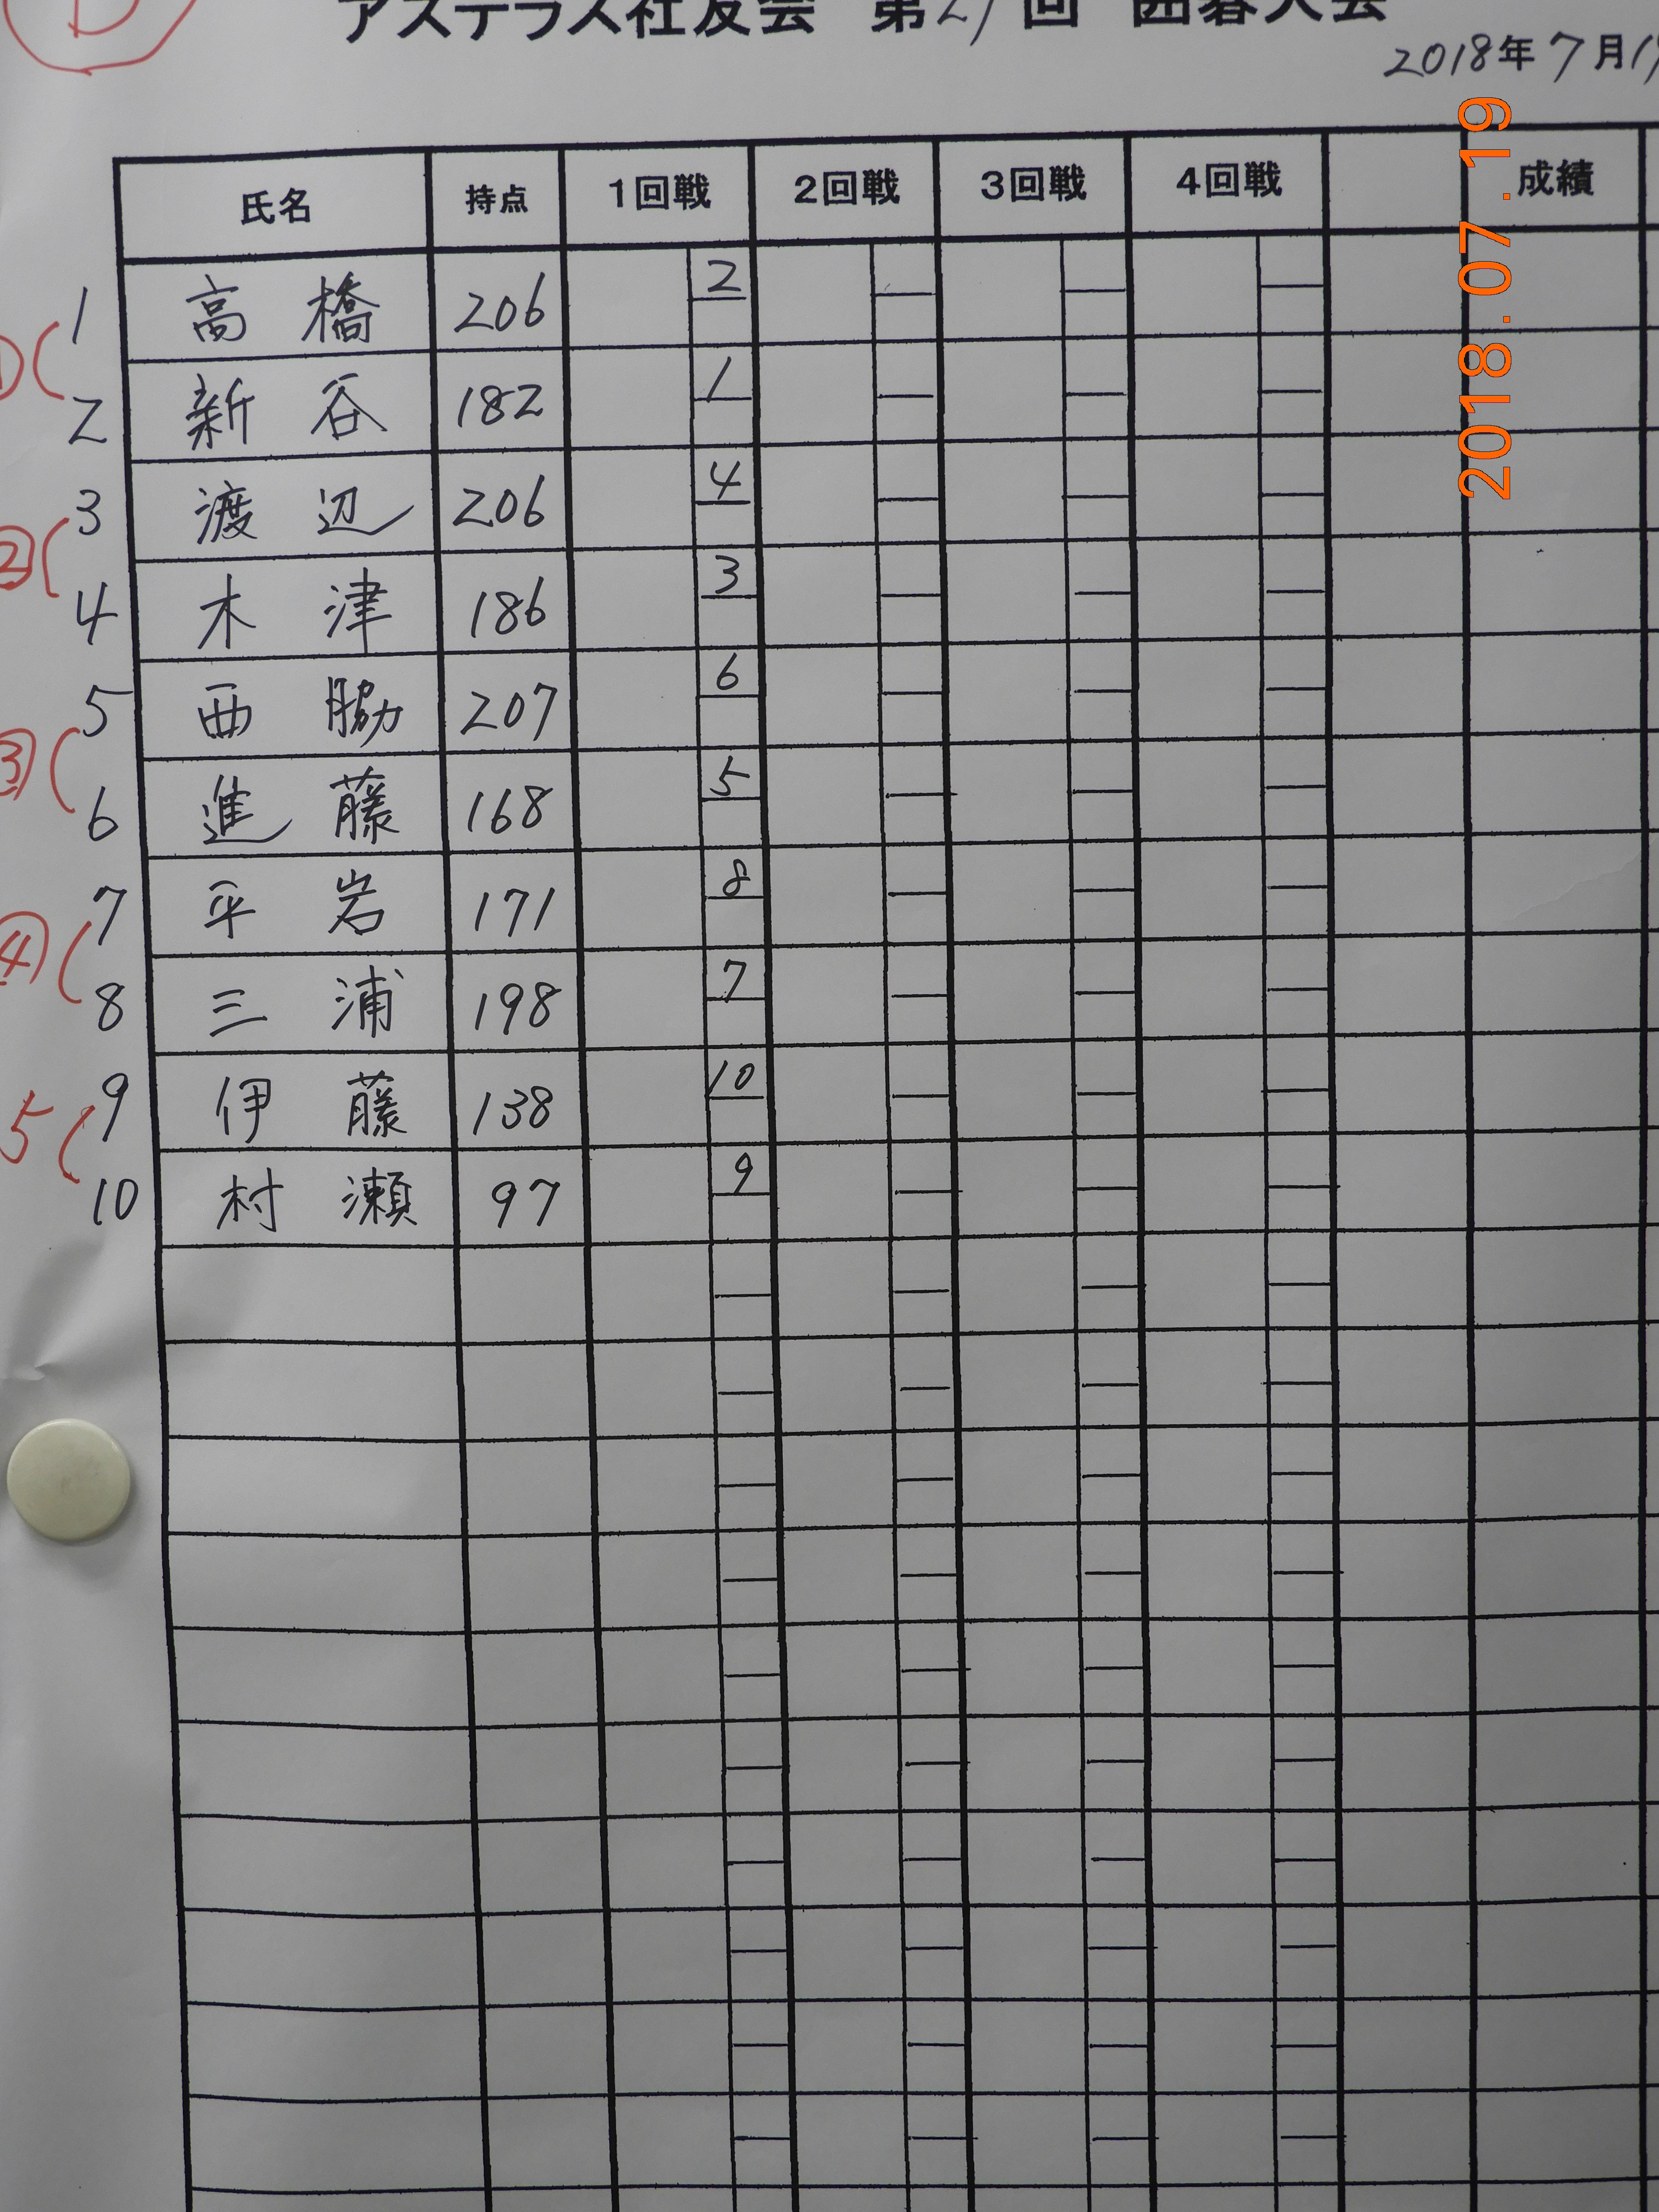 アステラス社友会 第21回 囲碁大会
2018年7月19
2018.07.19
氏名 持点 1回戦 2回戦 3回戦 4回戦 成績
① 1 高橋 206 2
2 新谷 182 1
② 3 渡辺 206 4
4 木津 186 3
③ 5 西脇 207 6
6 進藤 168 5
④ 7 平岩 171 8
8 三浦 198 7
5 9 伊藤 138 10
10 村瀬 97 9